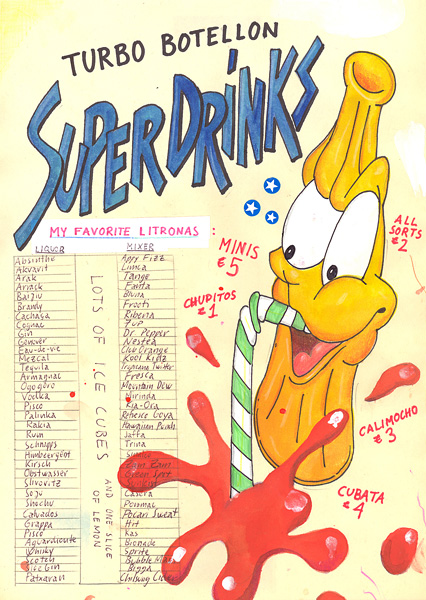 TURBO BOTELLON
SUPERDRINKS
MY FAVORITE LITRONAS :
LIQUOR
Absinthe
Akvavit
Arak
Arrack
Baijiu
Brandy
Cachaça
Cognac
Gin
Genever
Eau-de-vie
Mezcal
Tequila
Armagnac
Ogogoro
Vodka
Pisco
Palinka
Rakia
Rum
Schnapps
Himbeergeist
Kirsch
Obstwasser
Slivovitz
Soju
Shochu
Calvados
Grappa
Pisco
Aguardiente
Whisky
Scotch
Sloe Gin
Patxaran
LOTS OF ICE CUBES
AND ONE SLICE
OF LEMON
MIXER
Appy Fizz
Limca
Tango
Fanta
Bluna
Frooti
Ribena
7up
Dr. Pepper
Nestea
Club Orange
Kool Aid
Tropicana Twister
Fresca
Mountain Dew
Mirinda
Kia-Ora
Refresco Goya
Hawaiian Punch
Jaffa
Trina
Zam Zam
Green Spot
Casera
Perrmac
Pocari Sweat
Hit
Kas
Bionade
Sprite
Bubble
MINIS
€5
CHUPITOS
€1
ALL
SORTS
€2
CALIMOCHO
€3
CUBATA
€4